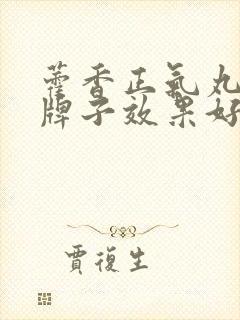 藿香正氣丸
牌子效果好
賈復生